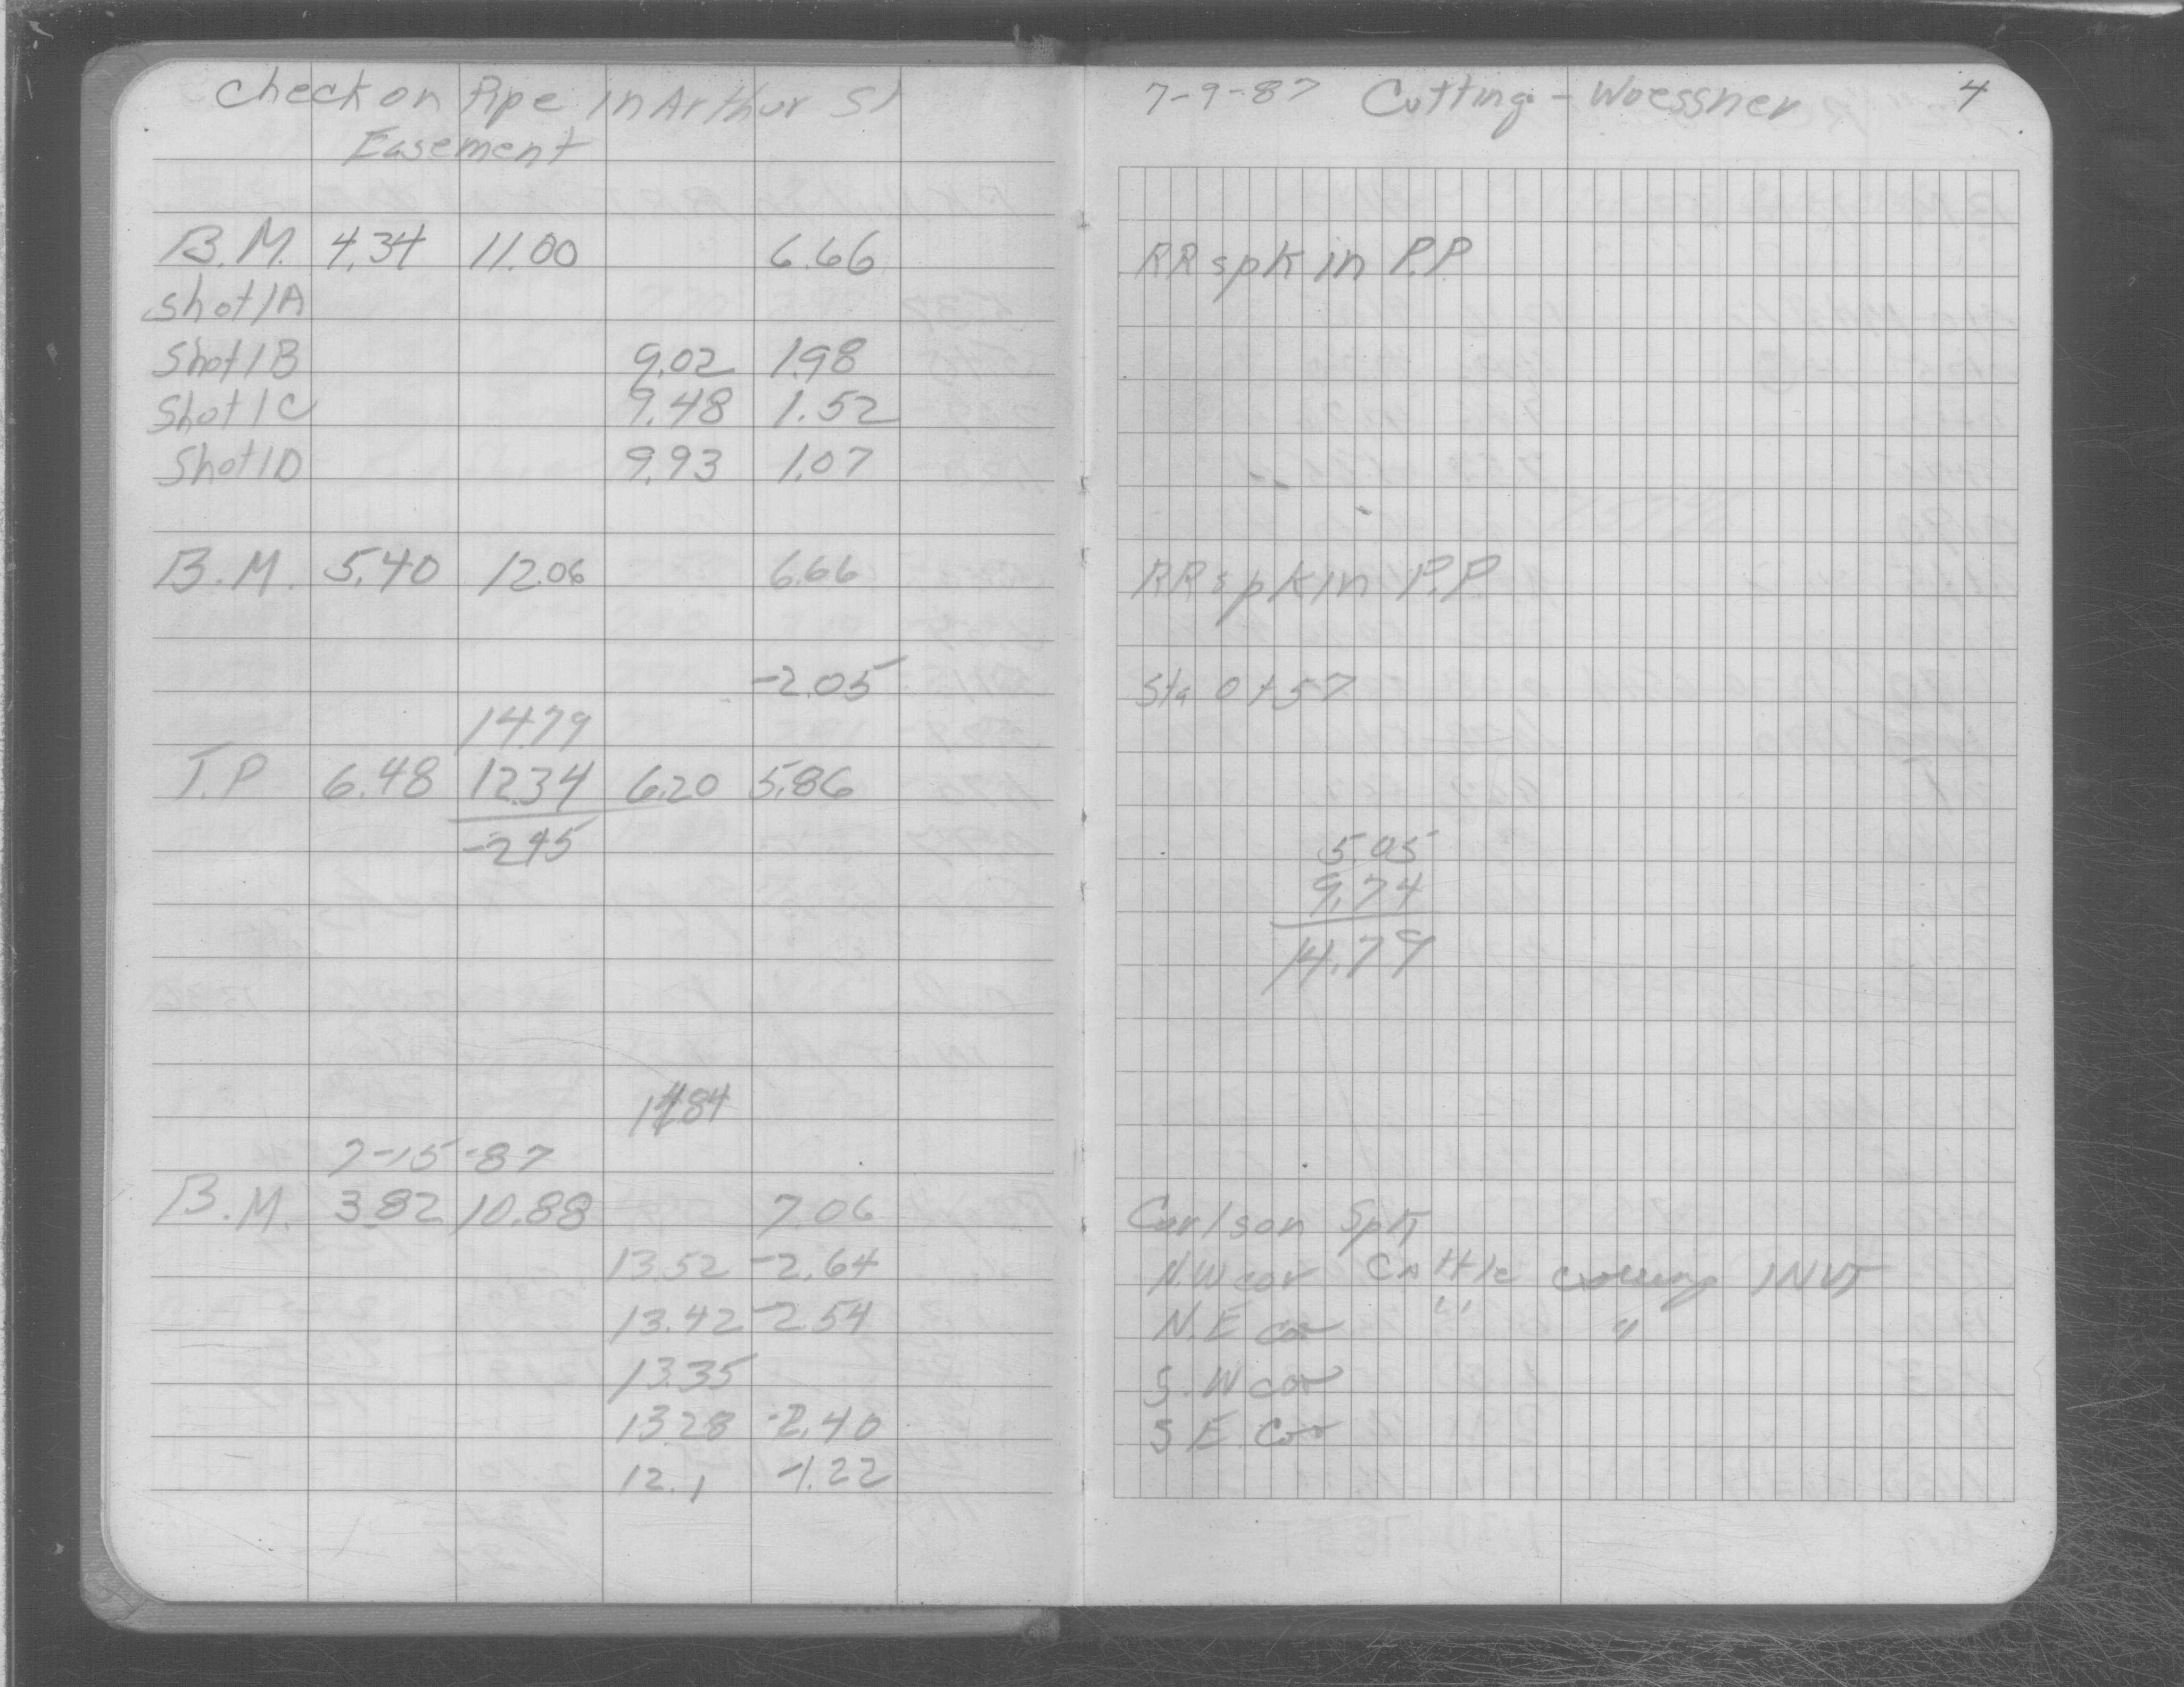 Check on Pipe in Arthur St
Easement
B.M. 4.34 11.00 6.66
Shot 1A
Shot 1B 9.02 1.98
Shot 1C 9.48 1.52
Shot 1D 9.93 1.07
B.M. 5.40 12.06 6.66
-2.05
14.79
T.P 6.48 12.34 6.20 5.86
-2.45
7-15-87
B.M. 3.82 10.88 7.06
13.52 -2.64
13.42 -2.54
13.35
13.28 -2.40
12.1 -1.22
7-9-87 Cutting - Woessner 4
RR spk in P.P.
RR spk in P.P.
Sta 0+57
5.05
9.74
14.79
Carlson Spk
N.W cor Cattle crossing INVT
N.E cor " "
S.W cor
S E. Cor